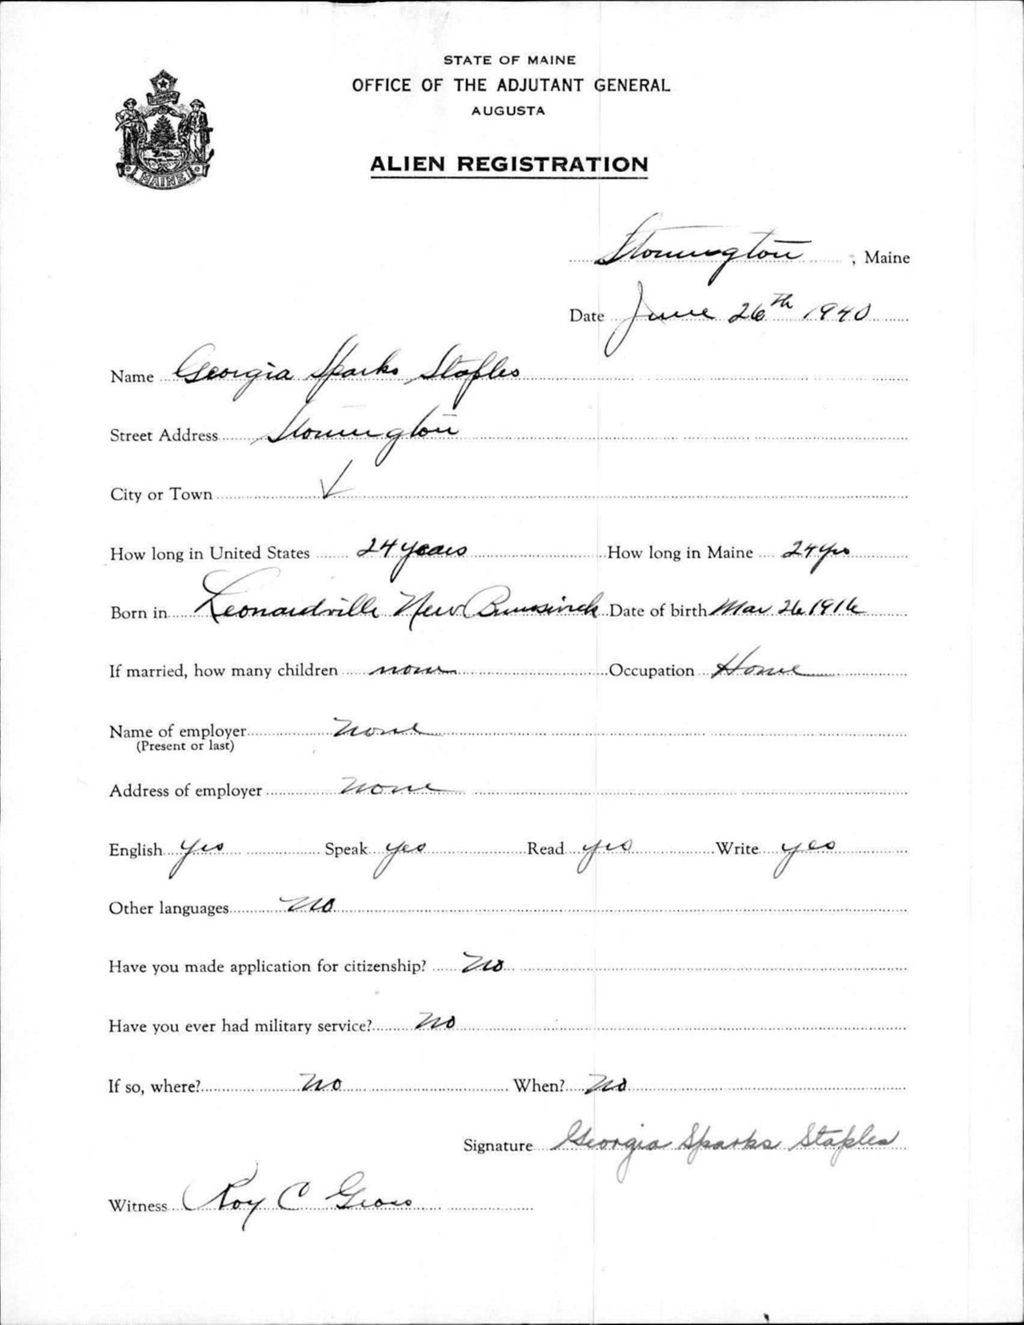 STATE OF MAINE
OFFICE OF THE ADJUTANT GENERAL
AUGUSTA
ALIEN REGISTRATION
MAINE
Stonington, Maine
Date June 26th 1940
Name Georgia Sparks Staples
Street Address Stonington
City or Town ✓
How long in United States 24 years How long in Maine 24 yrs
Born in Leonardville New Brunswick Date of birth Mar 26 1916
If married, how many children none Occupation Home
Name of employer None
(Present or last)
Address of employer None
English Yes Speak yes Read yes Write yes
Other languages No
Have you made application for citizenship? No
Have you ever had military service? No
If so, where? No When? No
Signature Georgia Sparks Staples
Witness Roy C Gross